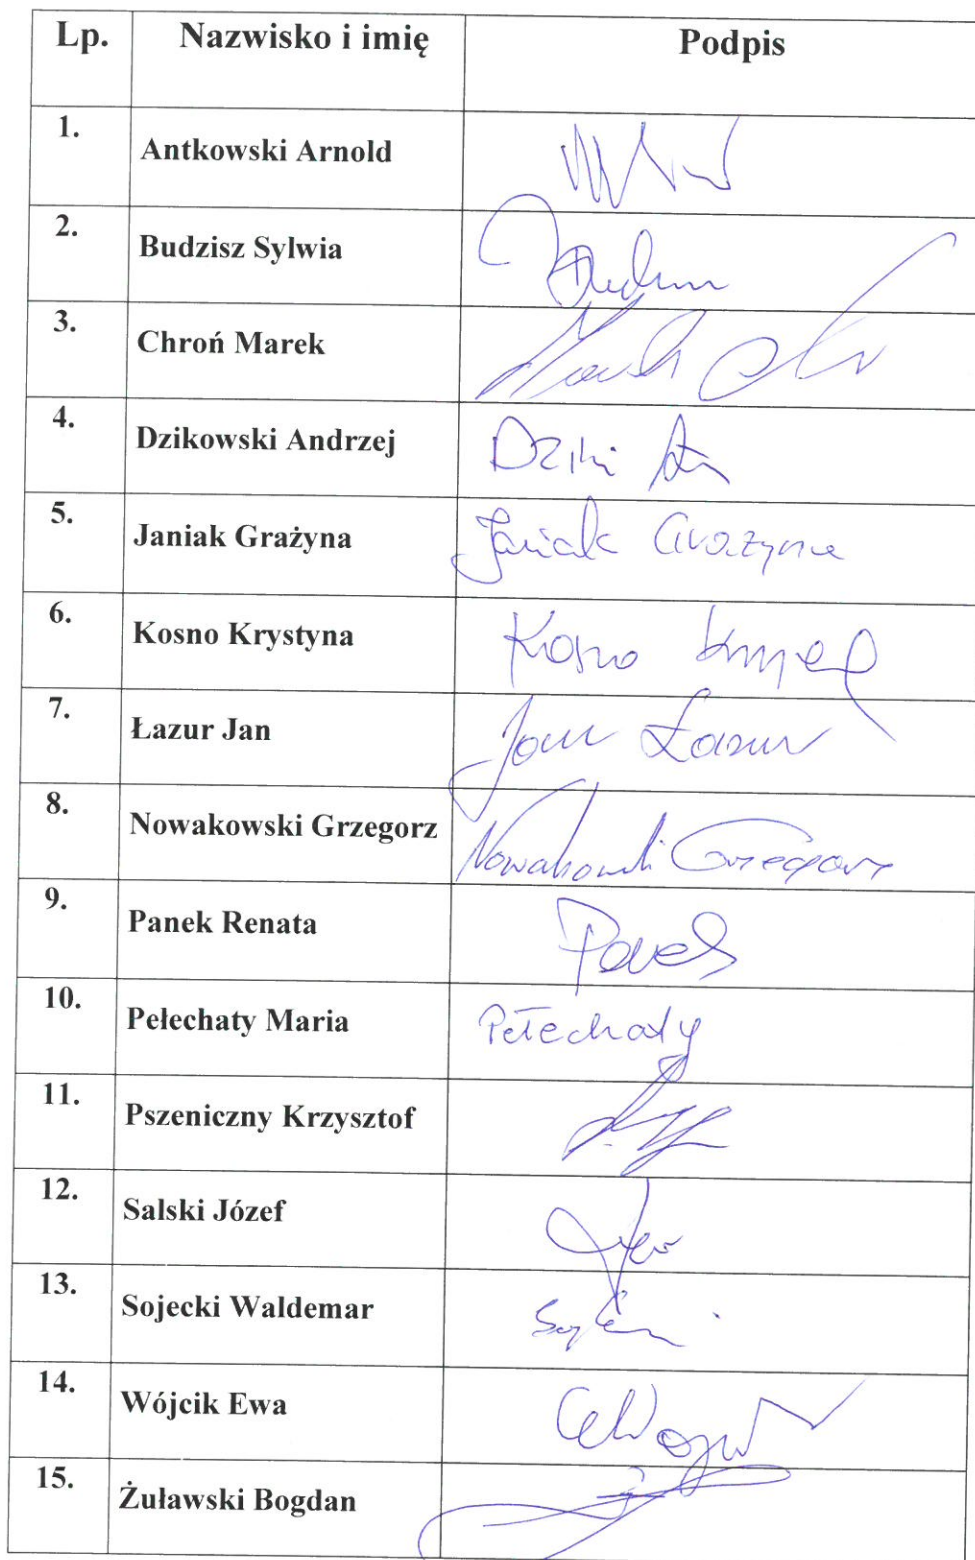 Lp. Nazwisko i imię Podpis
1. Antkowski Arnold
2. Budzisz Sylwia
3. Chroń Marek
4. Dzikowski Andrzej
5. Janiak Grażyna Janiak Grażyna
6. Kosno Krystyna Kosno
7. Łazur Jan Jan Łazur
8. Nowakowski Grzegorz Nowakowski Grzegorz
9. Panek Renata
10. Pełechaty Maria Pełechaty
11. Pszeniczny Krzysztof
12. Salski Józef
13. Sojecki Waldemar
14. Wójcik Ewa
15. Żuławski Bogdan